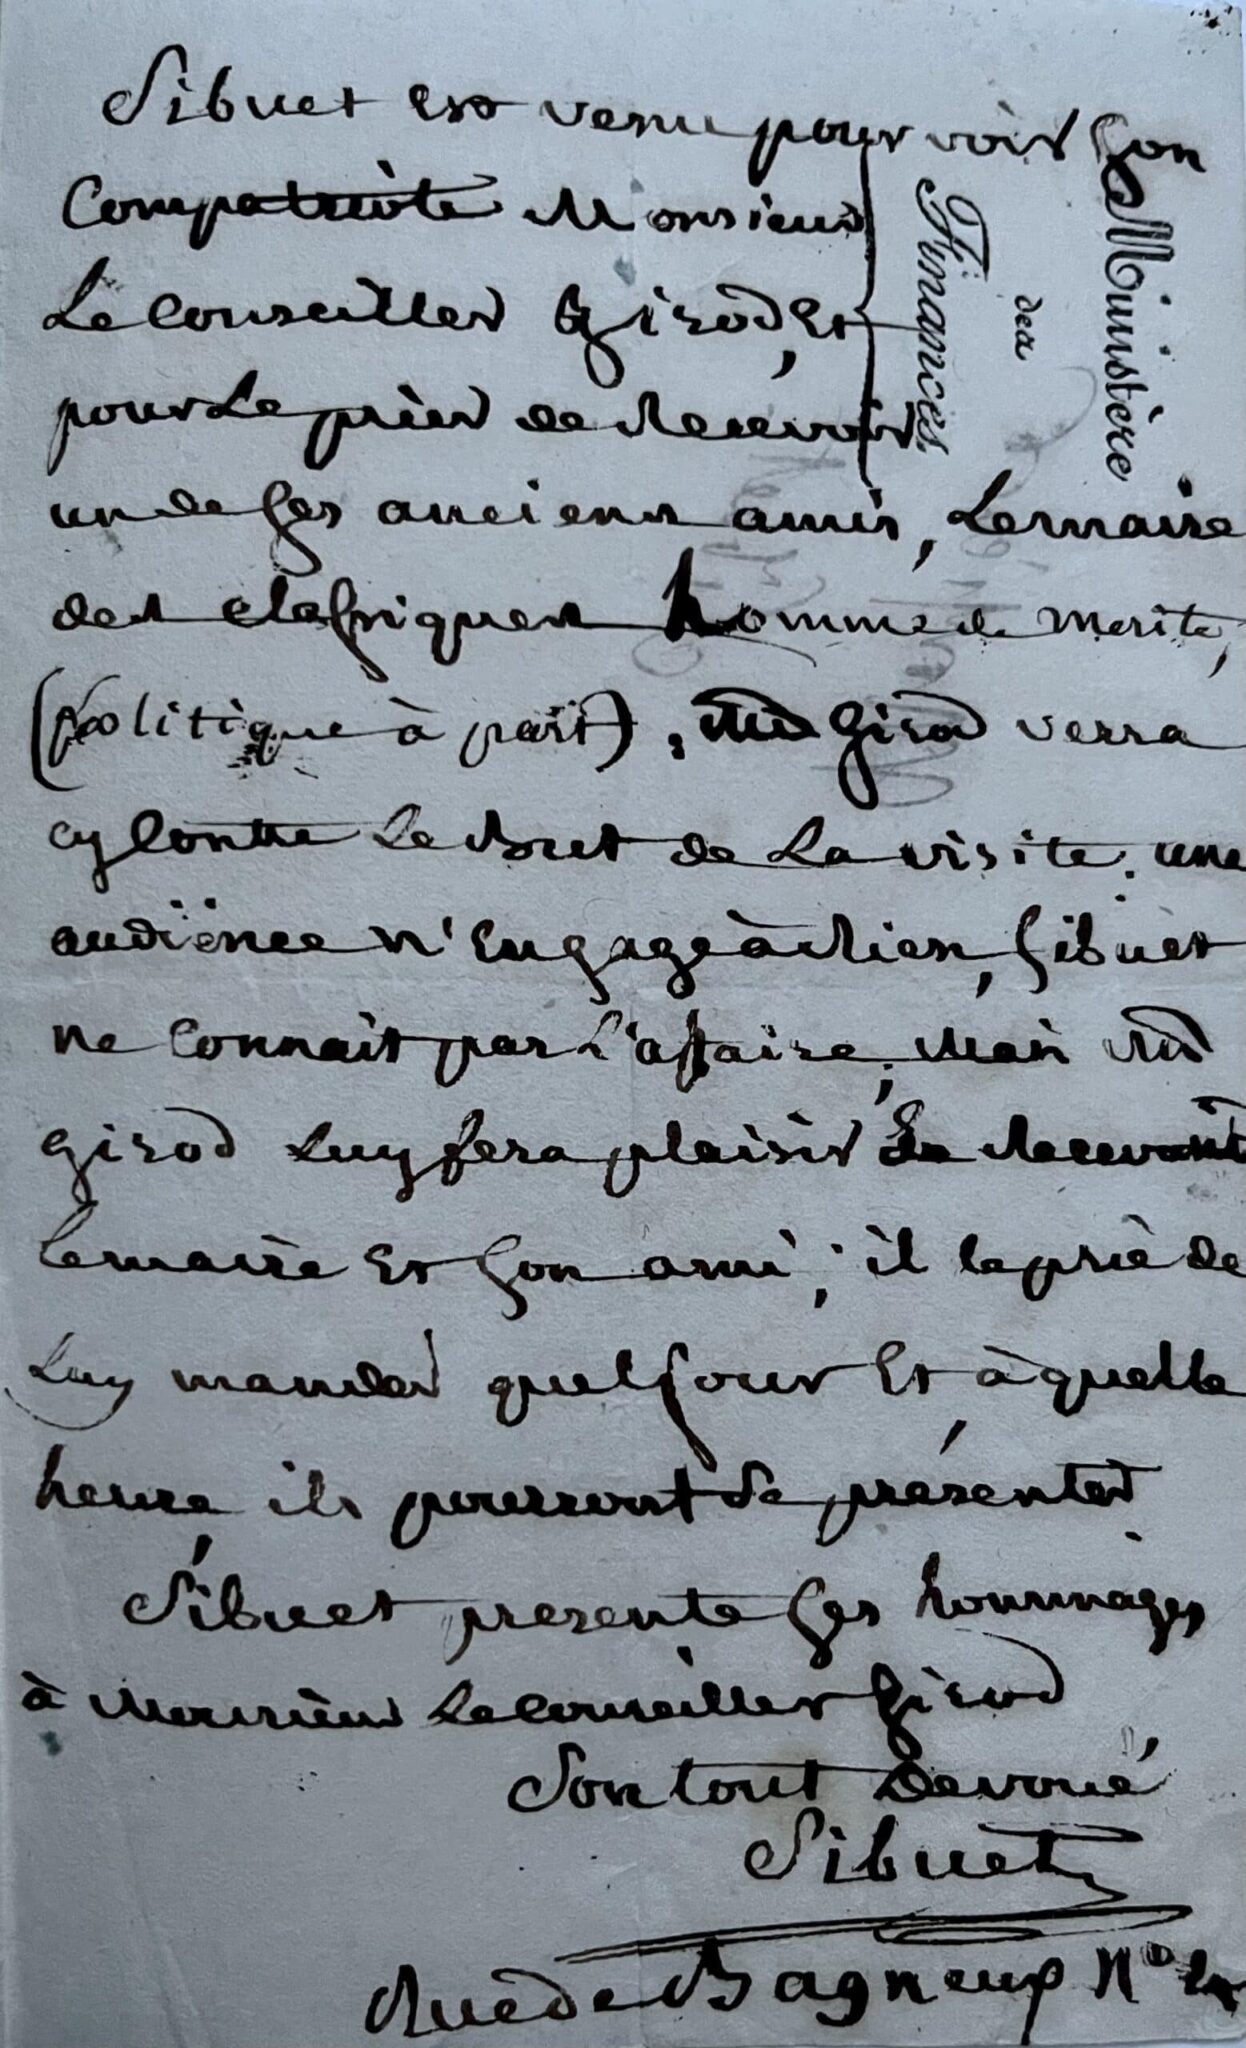 Sibuet est venu pour voir son
Compatriote Monsieur
Le Conseiller Girod, Et
pour Le prier de Recevoir
un de Ses anciens amis, Lemaire
des homme de merite,
(politique à part), Mr Girod verra
cy Contre Le But de La visite. une
audiënce n'Engage à Rien, Sibuet
ne Connait pas L'affaire, Mais Mr
Girod Luy fera plaisir De Recevoir
Lemaire Est Son ami, il le prie de
Luy mander quel jour Et à quelle
heure ils pourront Se présenter
Sibuet presente Ses hommages
à Monsieur Le Conseiller Girod
Son tout Devoué
Sibuet
Rue de Bagneux N°
Ministère
des
Finances.